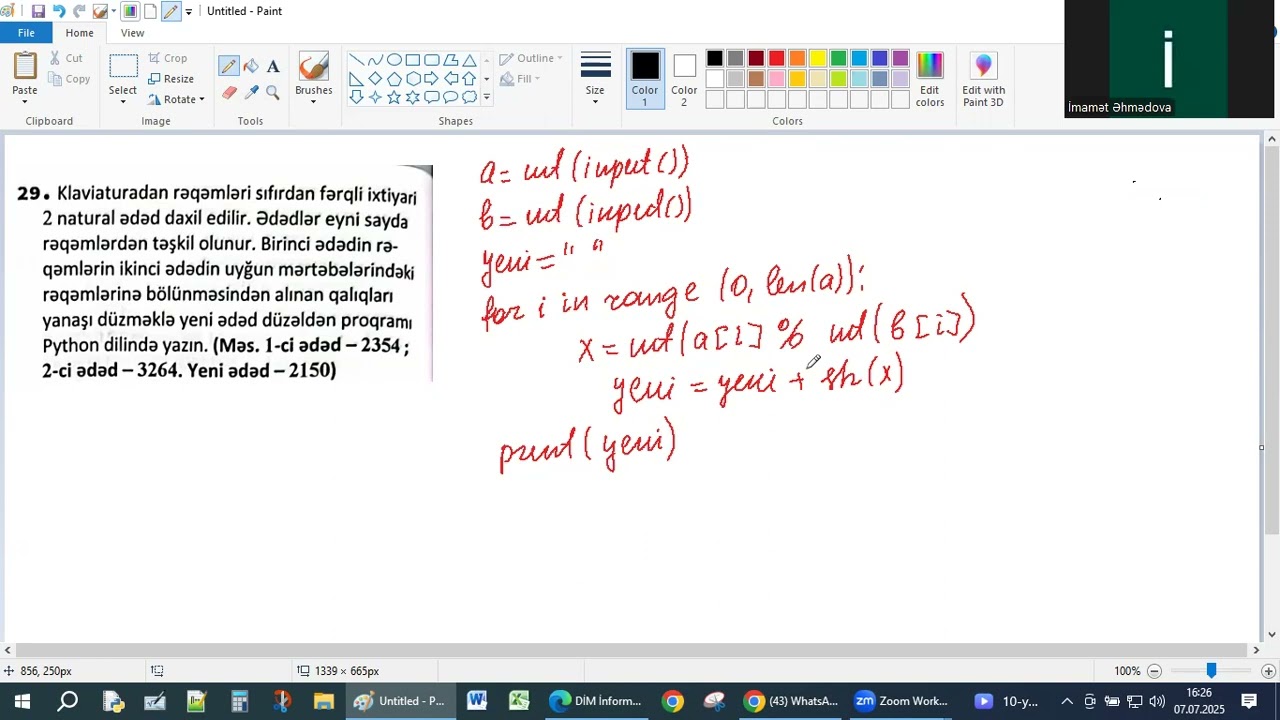 Untitled - Paint
File
Home
View
Paste
Cut
Copy
Clipboard
Select
Crop
Resize
Rotate
Image
Tools
Brushes
Shapes
Outline
Fill
Size
Color 1
Color 2
Edit colors
Edit with Paint 3D
Colors
i
İmamət Əhmədova
29. Klaviaturadan rəqəmləri sıfırdan fərqli ixtiyari
2 natural ədəd daxil edilir. Ədədlər eyni sayda
rəqəmlərdən təşkil olunur. Birinci ədədin rə-
qəmlərin ikinci ədədin uyğun mərtəbələrindəki
rəqəmlərinə bölünməsindən alınan qalıqları
yanaşı düzməklə yeni ədəd düzəldən proqramı
Python dilində yazın. (Məs. 1-ci ədəd – 2354 ;
2-ci ədəd – 3264. Yeni ədəd – 2150)
a= int (input())
b= int (input())
yeni= " "
for i in range (0, len(a)):
x = int(a[i] % int(b[i])
yeni = yeni + str(x)
print(yeni)
856, 250px
1339 × 665px
100%
Untitled - P...
DİM İnfor...
(43) WhatsA...
Zoom Work...
10-y...
16:26
07.07.2025